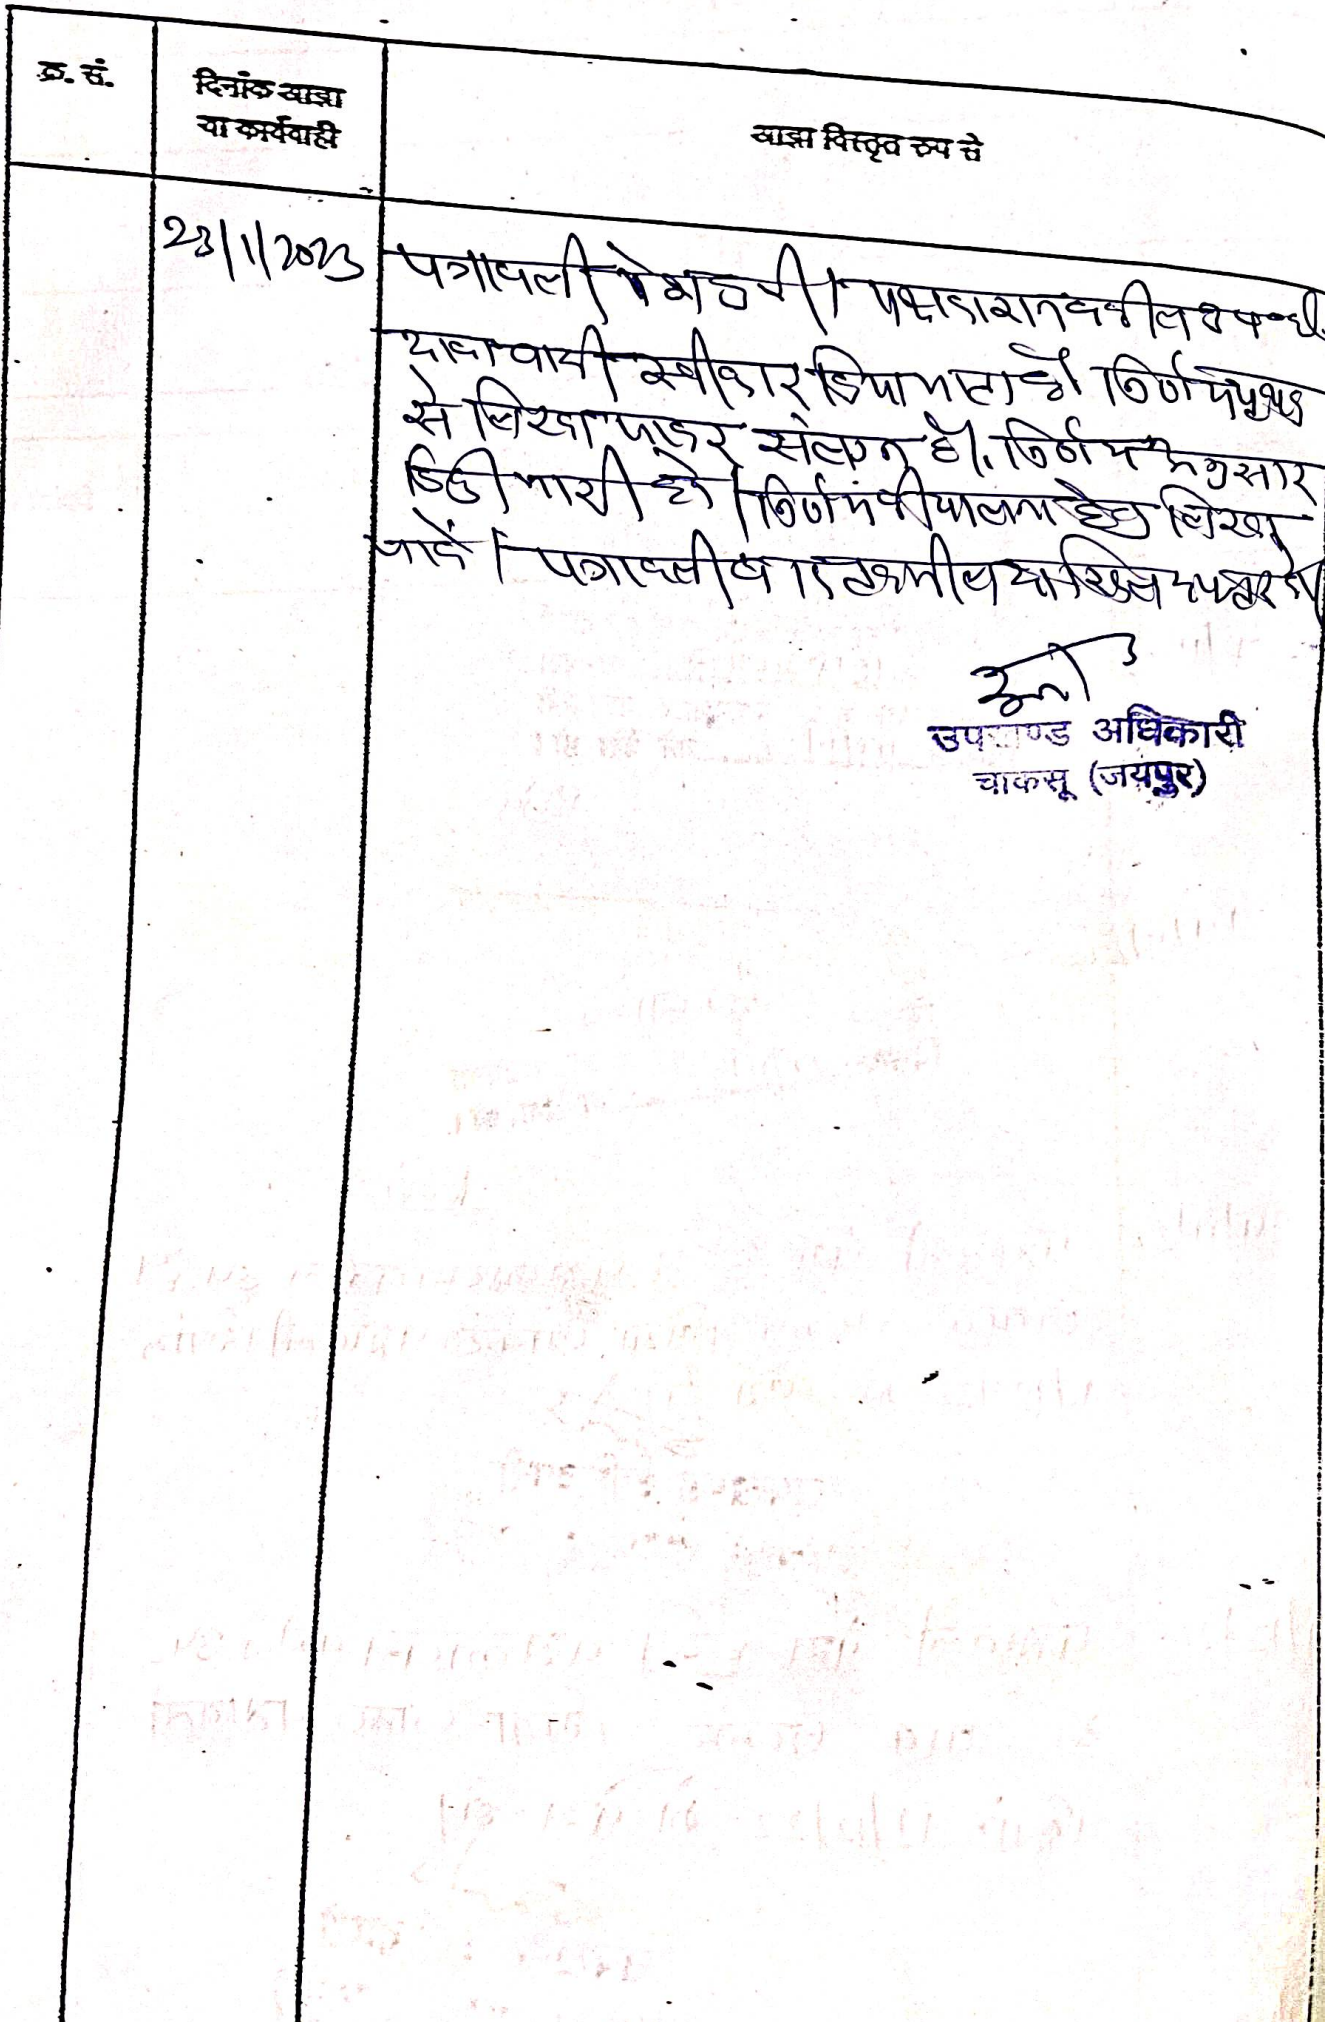 क्र. सं.
दिनांक आज्ञा
या कार्यवाही
आज्ञा विस्तृत रूप से
23/1/2023
पत्रावली पेश हुयी। पक्षकारान वकील
दावा वादी स्वीकार किया जाता है। निर्णय पृथक
से लिखा जाकर संलग्न है। निर्णय अनुसार
डिक्री जारी हो। निर्णय की पालना हेतु लिखा
जावें। पत्रावली बाद तकमील दाखिल दफ्तर हो।
उपखण्ड अधिकारी
चाकसू (जयपुर)